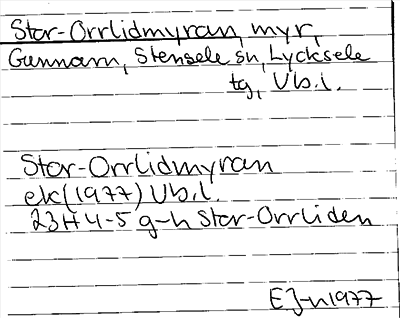 Stor-Orrlidmyran, myr,
Gunnarn, Stensele sn, Lycksele
tg, Vb.l.
Stor-Orrlidmyran
ek(1977) Vb.l.
23H 4-5 g-h Stor-Orrliden
EJ-n1977